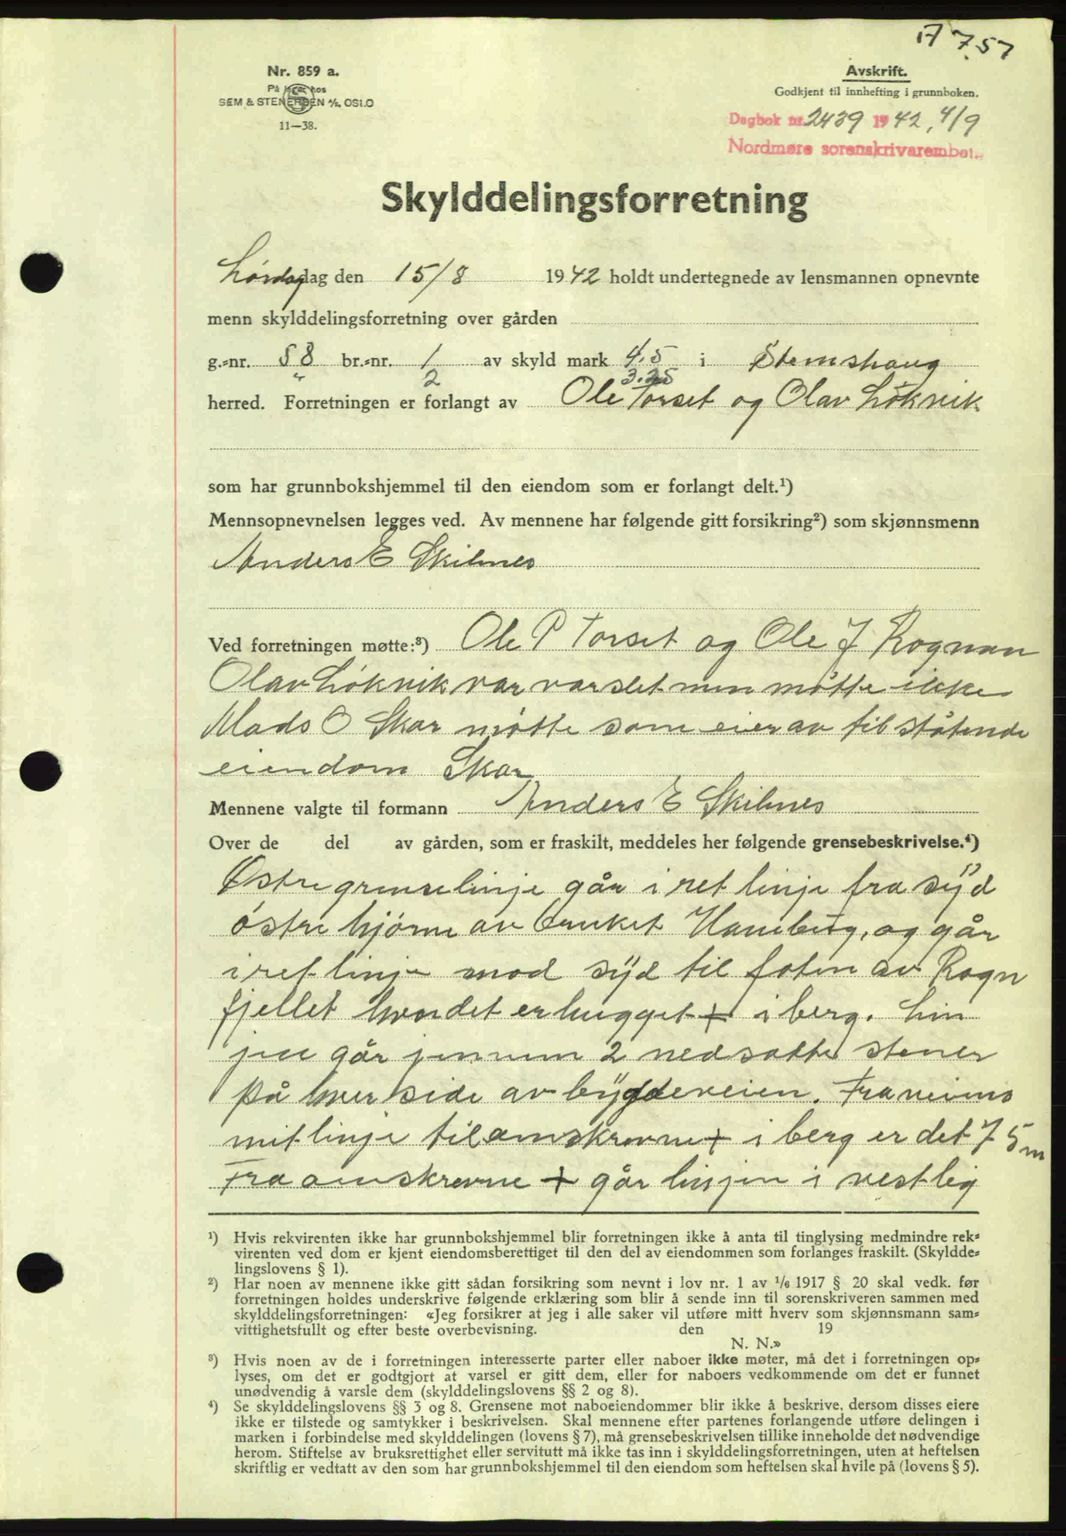 A 757
Nr. 859 a.
På lager hos
SEM & STENERSEN A/S. OSLO
11—38.
Avskrift.
Godkjent til innhefting i grunnboken.
Dagbok nr. 2439 1942, 4/9
Nordmøre sorenskrivarembet.
Skylddelingsforretning
Lørdag dag den 15/8 1942 holdt undertegnede av lensmannen opnevnte
menn skylddelingsforretning over gården
g.=nr. 58 br.=nr. 1 av skyld mark 4.5 i Stemshaug
" 2 3.25
herred. Forretningen er forlangt av Ole Torset og Olav Løkvik
som har grunnbokshjemmel til den eiendom som er forlangt delt.¹)
Mennsopnevnelsen legges ved. Av mennene har følgende gitt forsikring²) som skjønnsmenn
Anders E Skilnes
Ved forretningen møtte:³) Ole P Torset og Ole J Rognan
Olav Løkvik var varslet men møtte ikke
Mads O Skar møtte som eier av tilstøtende
eiendom Skar
Mennene valgte til formann Anders E Skilnes
Over de del av gården, som er fraskilt, meddeles her følgende grensebeskrivelse.⁴)
Østre grenselinje går i ret linje fra syd
østre hjørne av bruket Haneberg, og går
i ret linje mod syd til foten av Rogn
fjellet hvor det er hugget + i berg. Lin
jen går jennem 2 nedsatte stener
på hver side av bygdeveien. Fra veiens
mitlinje til omskrevne + i berg er det 75 m
Fra omskrevne + går linjen i vestlig
¹) Hvis rekvirenten ikke har grunnbokshjemmel blir forretningen ikke å anta til tinglysing medmindre rek=
virenten ved dom er kjent eiendomsberettiget til den del av eiendommen som forlanges fraskilt. (Skyldde=
lingslovens § 1).
²) Har noen av mennene ikke gitt sådan forsikring som nevnt i lov nr. 1 av 1/6 1917 § 20 skal vedk. før
forretningen holdes underskrive følgende erklæring som blir å sende inn til sorenskriveren sammen med
skylddelingsforretningen: «Jeg forsikrer at jeg i alle saker vil utføre mitt hverv som skjønnsmann sam=
vittighetsfullt og efter beste overbevisning. den 19
N. N.»
³) Hvis noen av de i forretningen interesserte parter eller naboer ikke møter, må det i forretningen op=
lyses, om det er godtgjort at varsel er gitt dem, eller for naboers vedkommende om det er funnet
unødvendig å varsle dem (skylddelingslovens §§ 2 og 8).
⁴) Se skylddelingslovens §§ 3 og 8. Grensene mot naboeiendommer blir ikke å beskrive, dersom disses eiere
ikke er tilstede og samtykker i beskrivelsen. Skal mennene efter partenes forlangende utføre delingen i
marken i forbindelse med skylddelingen (lovens § 7), må grensebeskrivelsen tillike inneholde det nødvendige
herom. Stiftelse av bruksrettighet eller servitutt må ikke tas inn i skylddelingsforretningen, uten at heftelsen
skriftlig er vedtatt av den som har grunnbokshjemmel til den eiendom som heftelsen skal hvile på (lovens § 5).